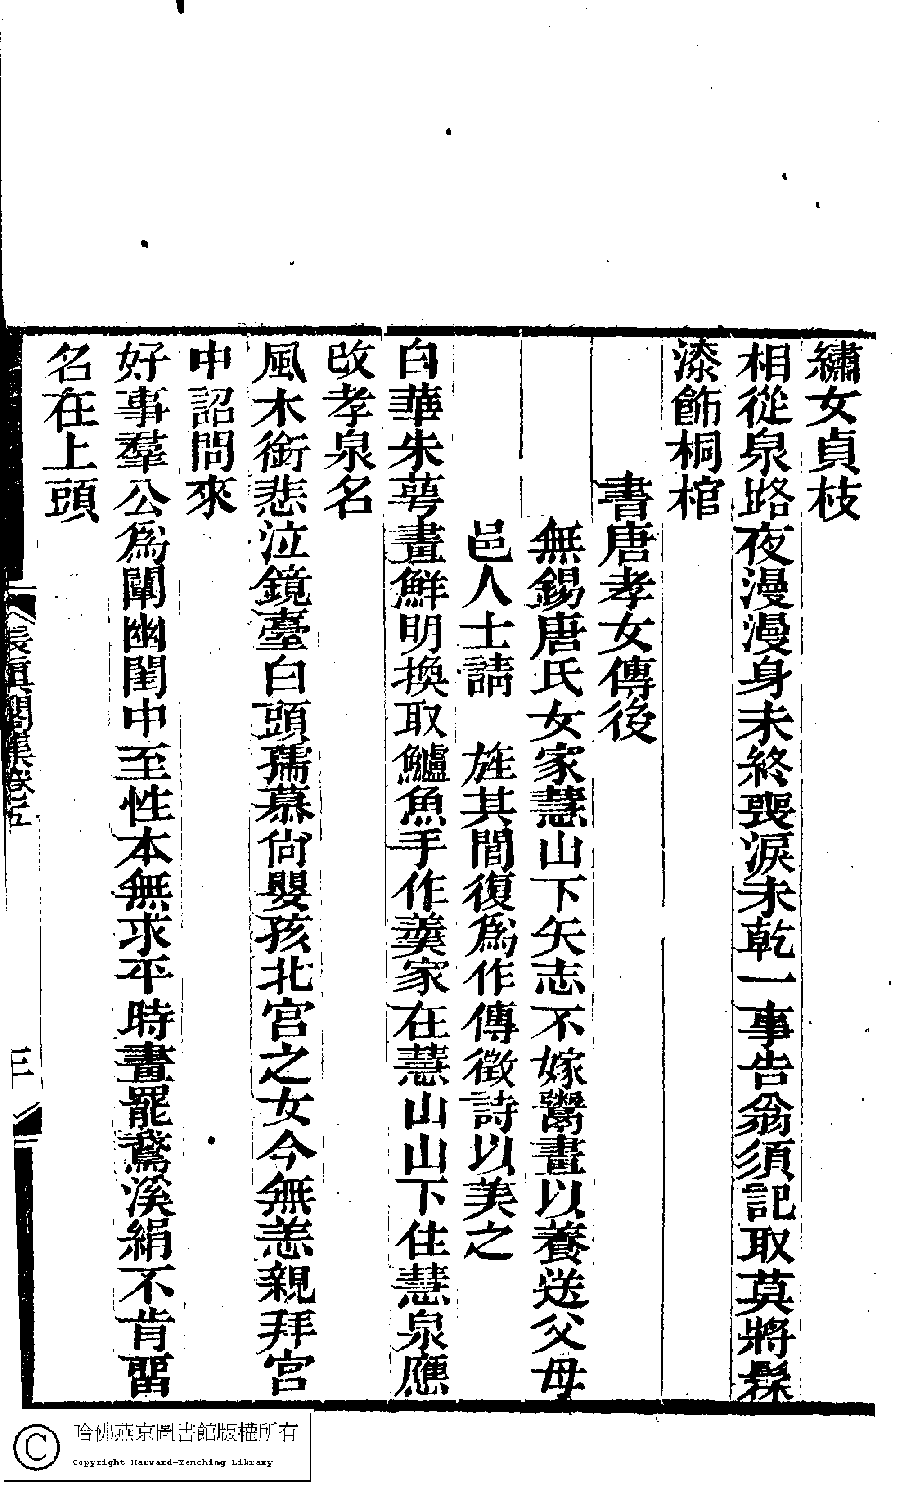 繡女貞枝
相從泉路夜漫漫身未終喪淚未乾一事告翁須記取莫將髹
漆飾桐棺
書唐孝女傳後
無錫唐氏女家慧山下矢志不嫁鬻畫以養送父母
邑人士請 旌其閭復爲作傳徵詩以美之
白華朱萼畫鮮明換取鱸魚手作羹家在慧山山下住慧泉應
改孝泉名
風木銜悲泣鏡臺白頭孺慕尙嬰孩北宮之女今無恙親拜宮
中詔問來
好事羣公爲闡幽閨中至性本無求平時畫罷鵞溪絹不肯畱
名在上頭
長眞閣集卷五
三
哈佛燕京圖書館版權所有
Copyright Harvard-Yenching Library